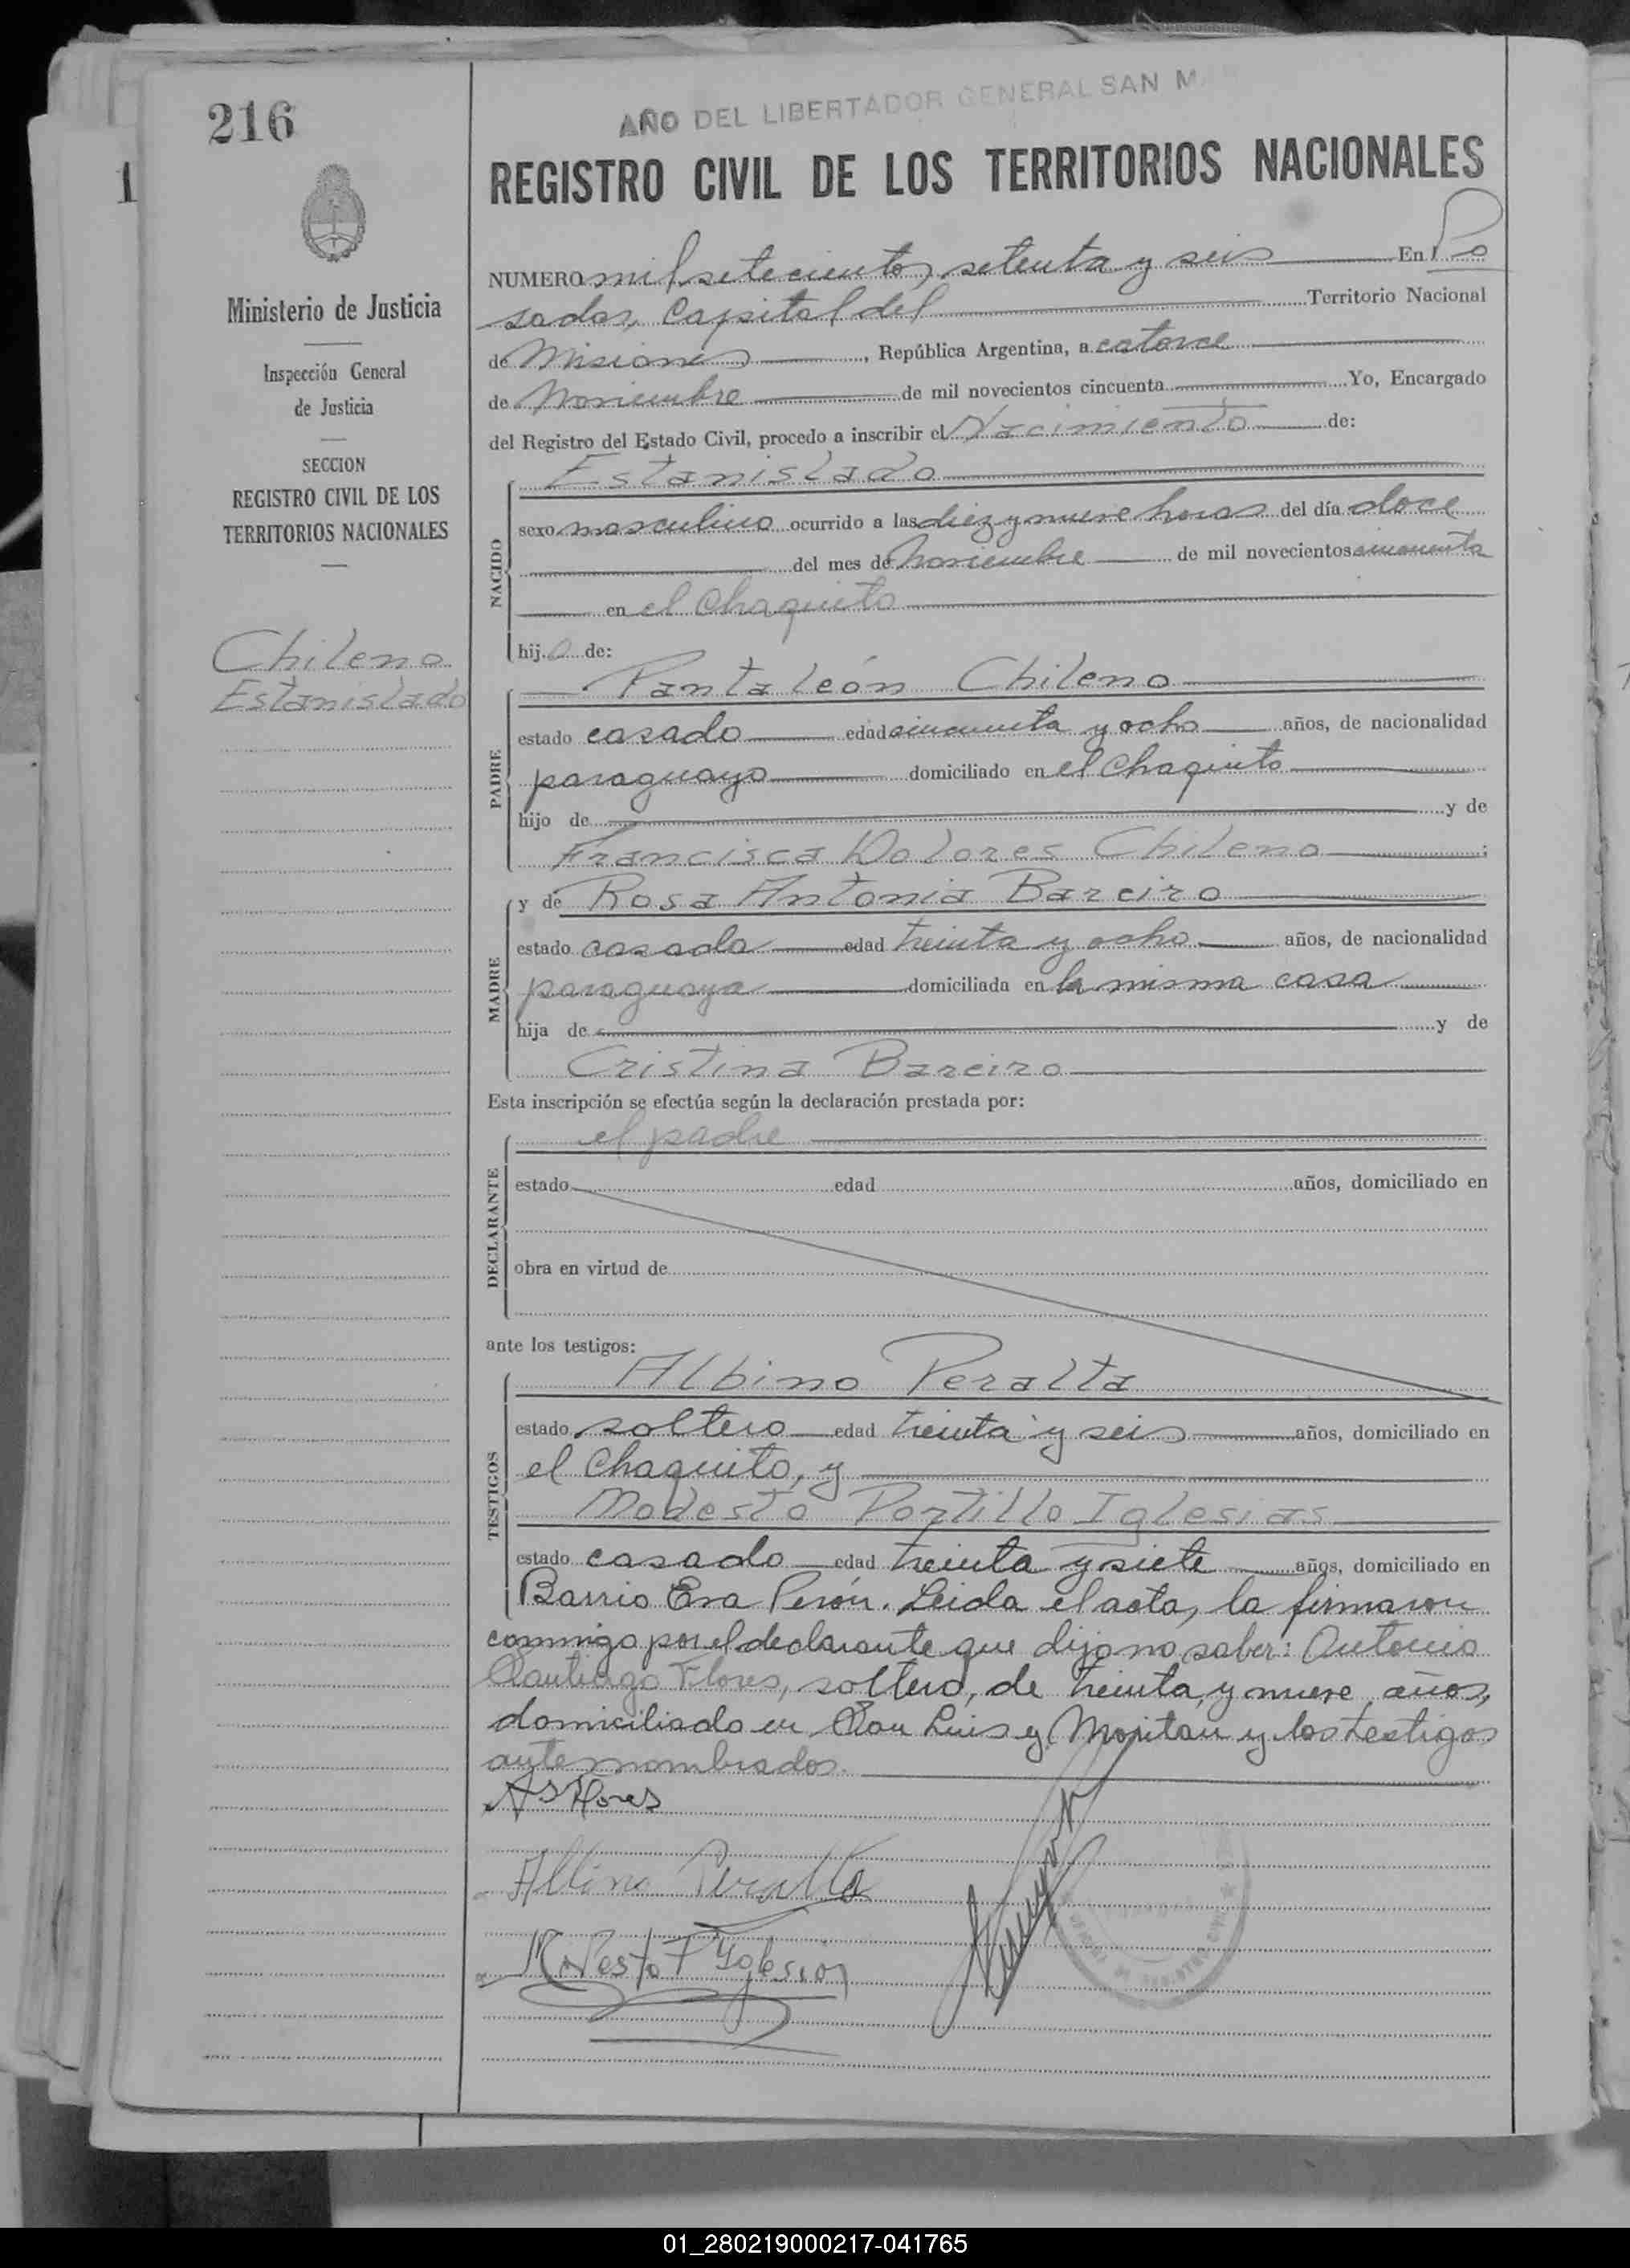 216
1
AÑO DEL LIBERTADOR GENERAL SAN M
REGISTRO CIVIL DE LOS TERRITORIOS NACIONALES
Ministerio de Justicia
Inspección General
de Justicia
SECCION
REGISTRO CIVIL DE LOS
TERRITORIOS NACIONALES
Chileno
Estanislado
NUMERO mil setecientos setenta y seis En Po
sadas, Capital del Territorio Nacional
de Misiones, República Argentina, a catorce
de Noviembre de mil novecientos cincuenta Yo, Encargado
del Registro del Estado Civil, procedo a inscribir el Nacimiento de:
Estanislado
NACIDO
sexo masculino ocurrido a las diez y nueve horas del día doce
del mes de Noviembre de mil novecientos cincuenta
en el Chaquito
hijo de:
Pantaleón Chileno
PADRE
estado casado edad cincuenta y ocho años, de nacionalidad
paraguayo domiciliado en el Chaquito
hijo de y de
Francisca Dolores Chileno;
y de Rosa Antonia Bareiro
MADRE
estado casada edad treinta y ocho años, de nacionalidad
paraguaya domiciliada en la misma casa
hija de y de
Cristina Bareiro
Esta inscripción se efectúa según la declaración prestada por:
el padre
DECLARANTE
estado edad años, domiciliado en
obra en virtud de
ante los testigos:
Albino Peralta
TESTIGOS
estado soltero edad treinta y seis años, domiciliado en
el Chaquito, y
Modesto Portillo Iglesias
estado casado edad treinta y siete años, domiciliado en
Barrio Eva Perón. Leida el acta, la firmaron
conmigo por el declarante que dijo no saber: Antonio
Santiago Flores, soltero, de treinta y nueve años,
domiciliado en San Luis y Moritán y los testigos
antes nombrados.
A S Flores
Albino Peralta
Modesto P Yglesias
01_280219000217-041765